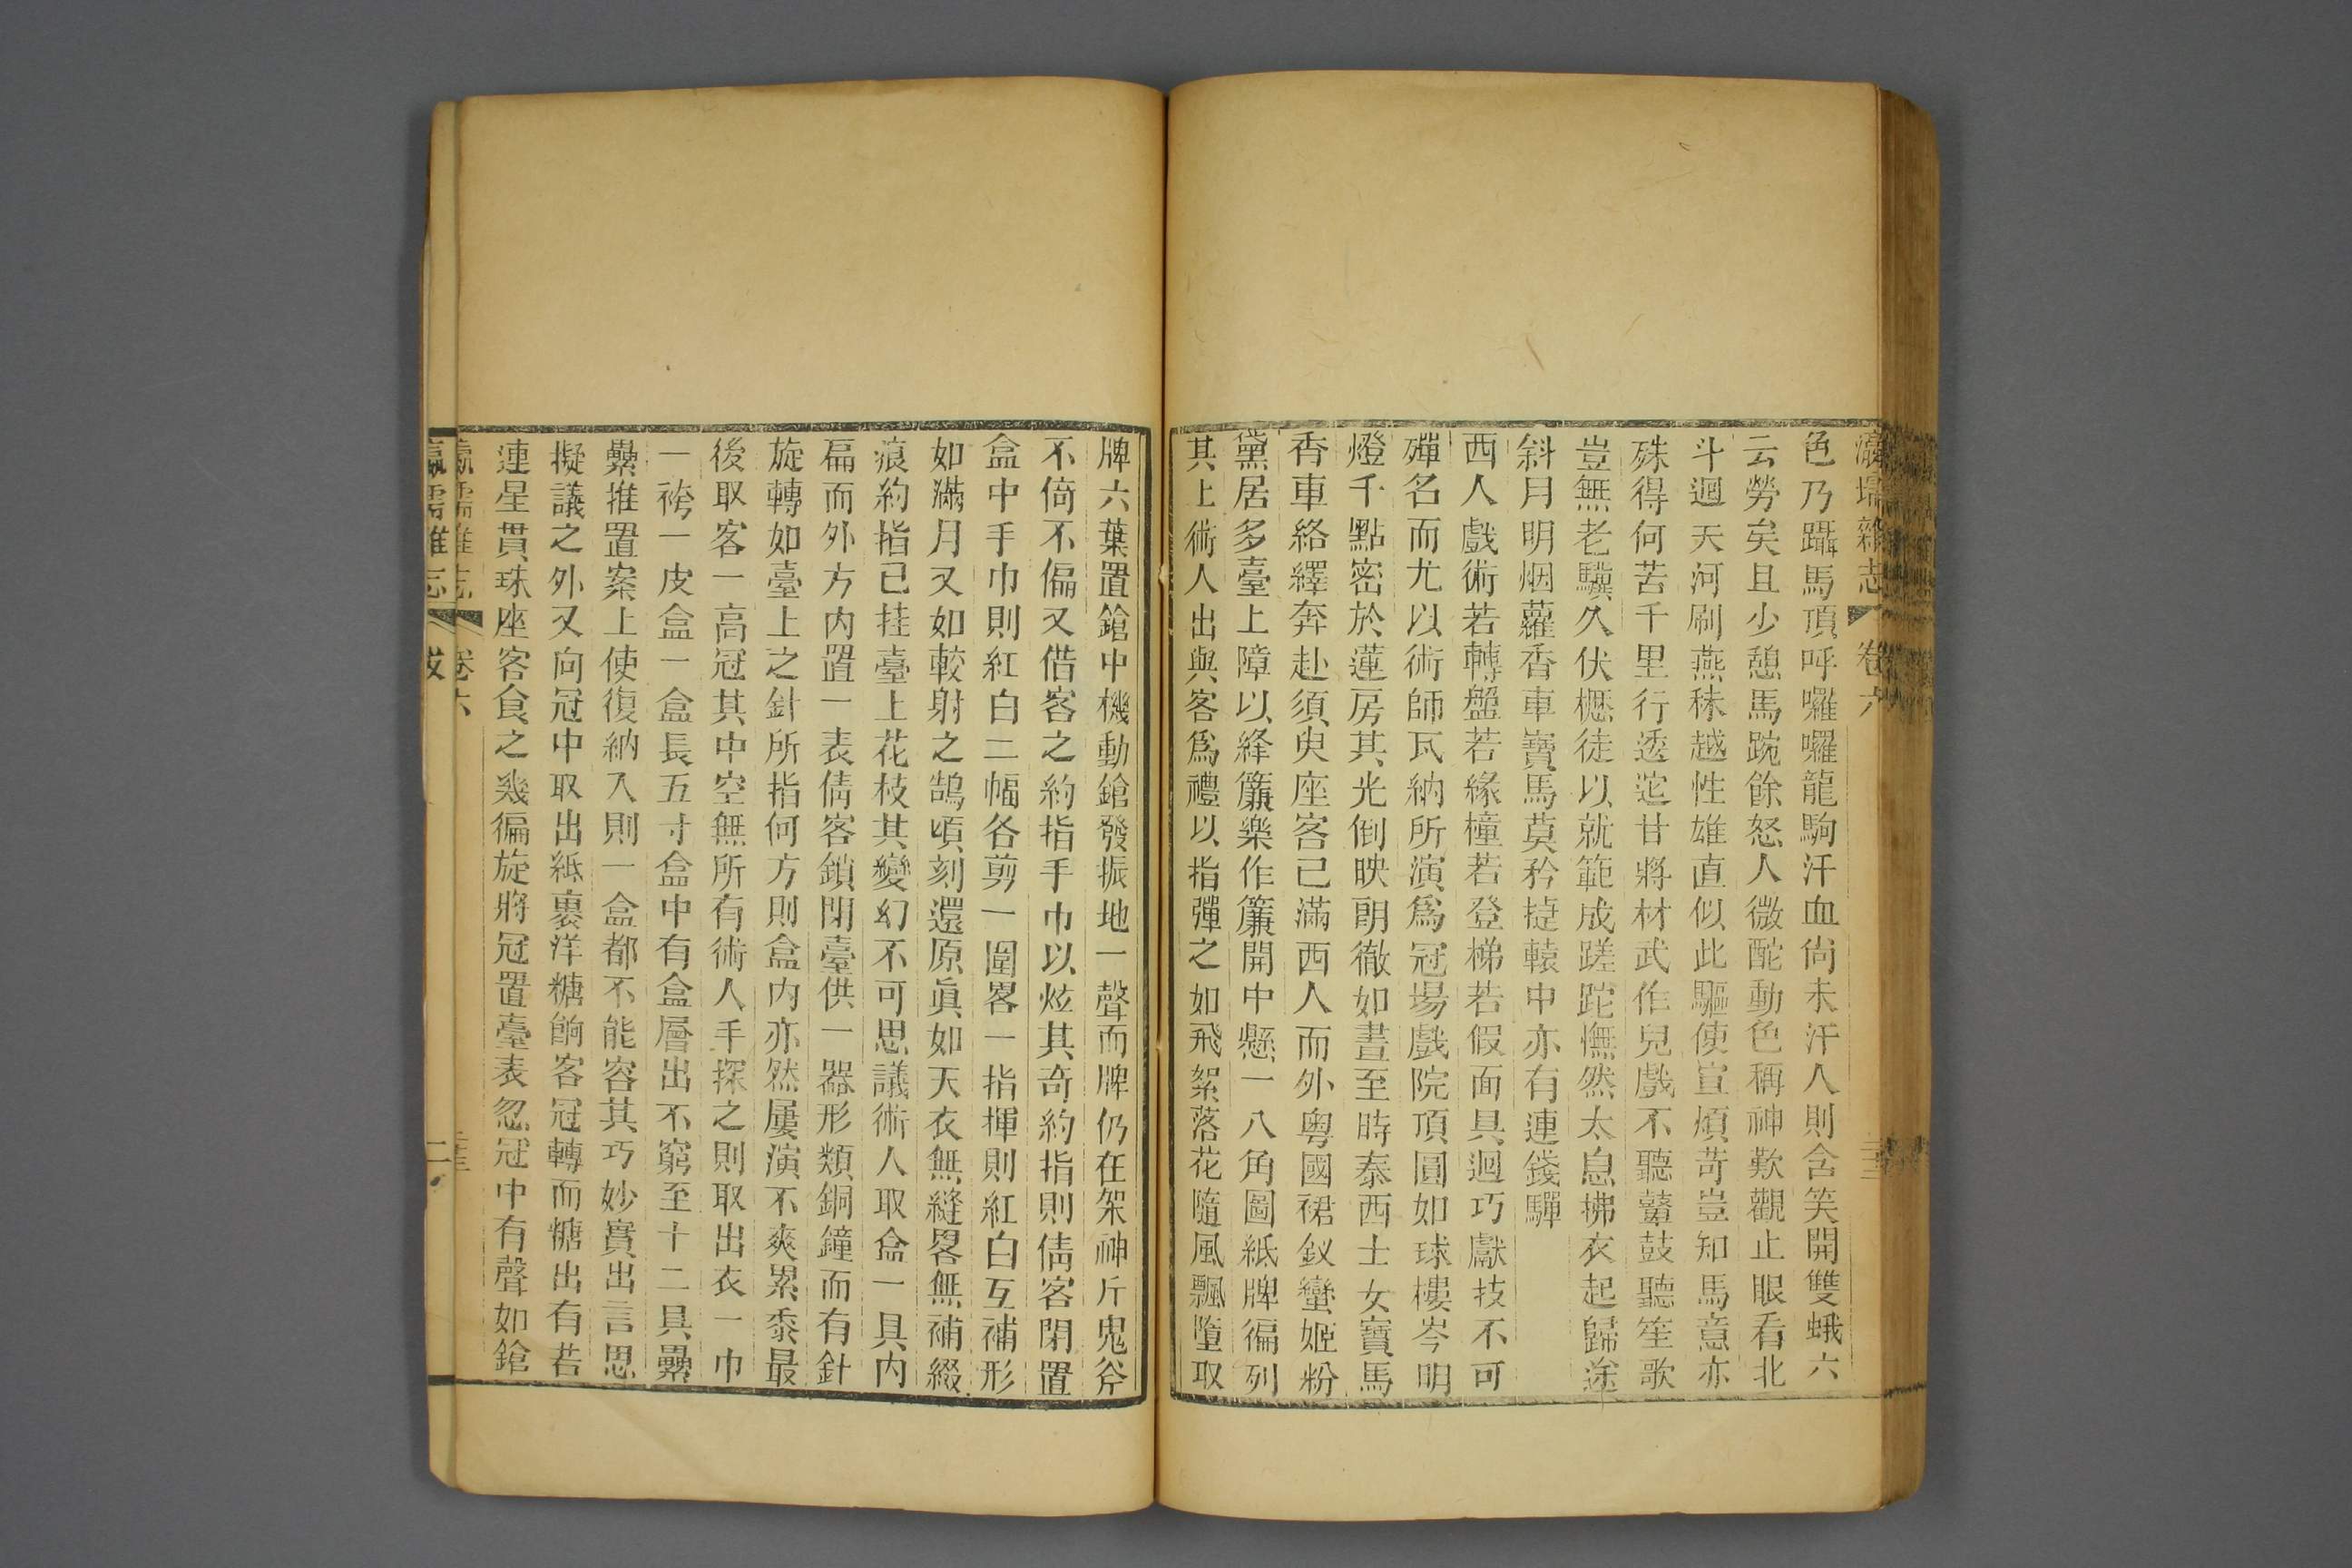 瀛壖雜志 卷六
色乃躡馬頂呼囉囉龍駒汗血尙未汗人則含笑開雙蛾六
云勞矣且少憩馬跪餘怒人微酡動色稱神歎觀止眼看北
斗迴天河刷燕秣越性雄直似此驅使宣煩苛豈知馬意亦
殊得何苦千里行逶迤甘將材武作兒戲不聽鼙鼓聽笙歌
豈無老驥久伏櫪徒以就範成蹉跎憮然太息拂衣起歸途
斜月明烟蘿香車寶馬莫矜捷轅中亦有連錢驒
西人戲術若轉盤若緣橦若登梯若假面具迴巧獻技不可
殫名而尤以術師瓦納所演爲冠塲戲院頂圓如球樓岑明
燈千點密於蓮房其光倒映朗徹如晝至時泰西士女寶馬
香車絡繹奔赴須臾座客已滿西人而外粵國裙釵蠻姬粉
黛居多臺上障以絳簾樂作簾開中懸一八角圖紙牌徧列
其上術人出與客爲禮以指彈之如飛絮落花隨風飄墮取
牌六葉置鎗中機動鎗發振地一聲而牌仍在架神斤鬼斧
不倚不偏又借客之約指手巾以炫其奇約指則倩客閉置
盒中手巾則紅白二幅各剪一圍畧一指揮則紅白互補形
如滿月又如較射之鵠頃刻還原眞如天衣無縫畧無補綴
痕約指已挂臺上花枝其變幻不可思議術人取盒一具內
扁而外方內置一表倩客鎖閉臺供一器形類銅鐘而有針
旋轉如臺上之針所指何方則盒內亦然屢演不爽累黍最
後取客一高冠其中空無所有術人手探之則取出衣一巾
一袴一皮盒一盒長五寸盒中有盒層出不窮至十二具纍
纍推置案上使復納入則一盒都不能容其巧妙實出言思
擬議之外又向冠中取出紙裹洋糖餉客冠轉而糖出有若
連星貫珠座客食之幾徧旋將冠置臺表忽冠中有聲如鎗
瀛壖雜志 卷六